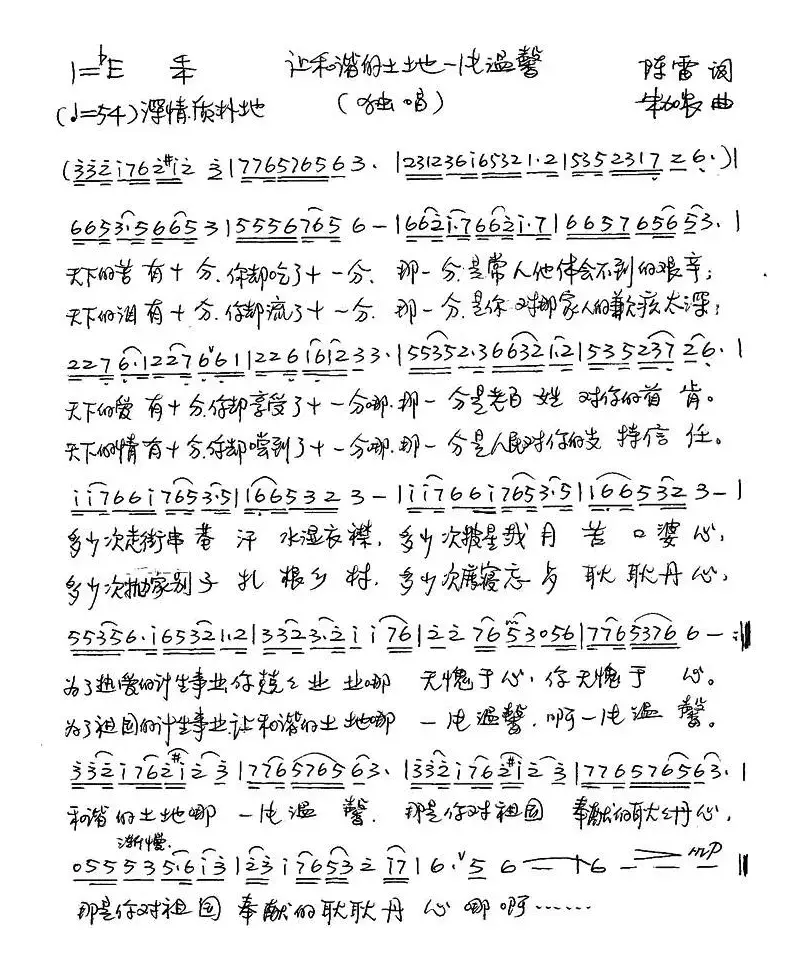 1=♭E 让和谐的土地一片温馨 陈雷 词
(♩=54)深情质朴地 (独唱) 曲
(3 3 2 i 7 6 2 #i 2 3 | 7 7 6 5 7 6 5 6 3 · | 2 3 1 2 3 6 i 6 5 3 2 1 · 2 | 5 3 5 2 3 1 7 2 6 · ) |
6 6 5 3 · 5 6 6 5 3 | 5 5 5 6 7 6 5 6 — | 6 6 2 i · 7 6 6 2 i · 7 | 6 6 5 7 6 5 6 5 3 · |
天下的苦有十分,你却吃了十一分,那一分是常人他体会不到的艰辛;
天下的泪有十分,你却流了十一分,那一分是你对那家人的歉疚太深;
2 2 7 6 · 1 2 2 7 6 ∨ 6 1 | 2 2 6 1 6 1 2 3 3 · | 5 5 3 5 2 · 3 6 6 3 2 1 · 2 | 5 3 5 2 3 7 2 6 · |
天下的爱有十分,你却享受了十一分哪,那一分是老百姓对你的首肯。
天下的情有十分,你却嚐到了十一分哪,那一分是人民对你的支持信任。
i i 7 6 6 i 7 6 5 3 · 5 | i 6 6 5 3 2 3 — | i i i 7 6 6 i 7 6 5 3 · 5 | i 6 6 5 3 2 3 — |
多少次走街串巷汗水湿衣襟,多少次披星戴月苦口婆心,
多少次抛家别子扎根乡村,多少次废寝忘食耿耿丹心,
5 5 3 5 6 · i 6 5 3 2 1 · 2 | 3 3 2 3 · 2 i i 7 6 | 2 2 7 6 5 3 0 5 6 | 7 7 6 5 3 7 6 6 — :||
为了热爱的计生事业你兢兢业业哪 无愧于心,你无愧于心。
为了祖国的计生事业,让和谐的土地哪一片温馨,啊一片温馨。
3 3 2 i 7 6 2 #i 2 3 | 7 7 6 5 7 6 5 6 3 · | 3 3 2 i 7 6 2 #i 2 3 | 7 7 6 5 7 6 5 6 3 · |
和谐的土地哪一片温馨,那是你对祖国奉献的耿耿丹心,
渐慢 mp
0 5 5 5 3 5 · 6 i 3 | 2 3 i 7 6 5 3 2 i 7 | 6 · ∨ 5 6 — | 6 — — — ||
那是你对祖国奉献的耿耿丹心哪啊……